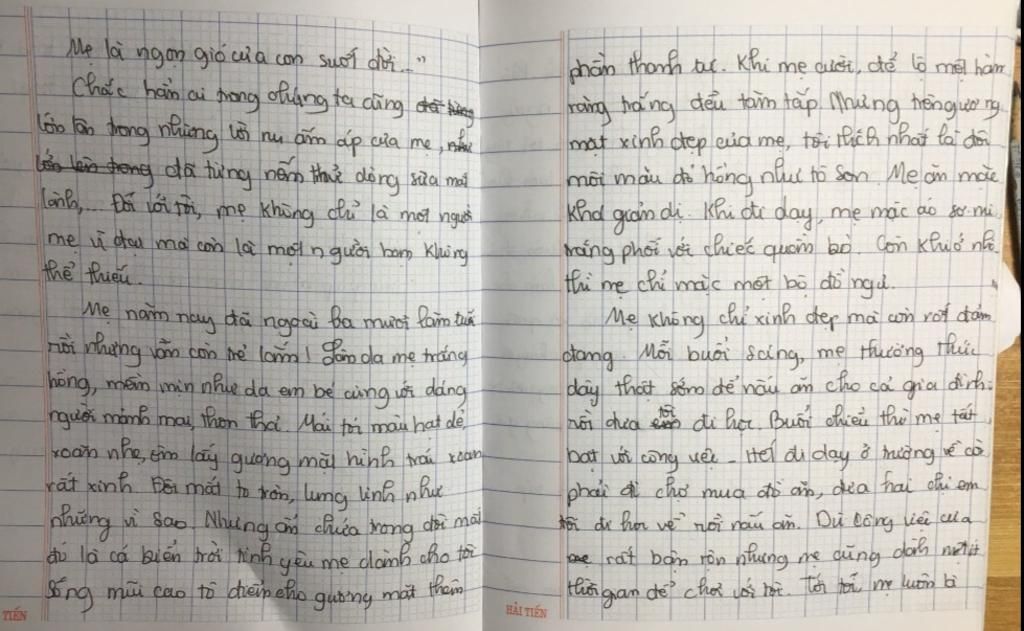 Mẹ là ngọn gió của con suốt đời..."
Chắc hẳn ai trong chúng ta cũng đã từng
lớn lên trong những lời ru ấm áp của mẹ, như
lớn lên trong đã từng nếm thử dòng sữa mát
lành,... Đối với tôi, mẹ không chỉ là một người
mẹ vĩ đại mà còn là một người bạn không
thể thiếu.
Mẹ năm nay đã ngoài ba mươi lăm tuổi
rồi nhưng vẫn còn trẻ lắm! Làn da mẹ trắng
hồng, mềm mịn như da em bé cùng với dáng
người mảnh mai, thon thả. Mái tóc màu hạt dẻ,
xoăn nhẹ, ôm lấy gương mặt hình trái xoan
rất xinh. Đôi mắt to tròn, lung linh như
những vì sao. Nhưng ẩn chứa trong đôi mắt
đó là cả biển trời tình yêu mẹ dành cho tôi
Sống mũi cao tô điểm cho gương mặt thêm
TIẾN
phần thanh tú. Khi mẹ cười, để lộ một hàm
răng trắng đều tăm tắp. Nhưng trên gương
mặt xinh đẹp của mẹ, tôi thích nhất là đôi
môi màu đỏ hồng như tô son. Mẹ ăn mặc
khá giản dị. Khi đi dạy, mẹ mặc áo sơ-mi
trắng phối với chiếc quần bò. Còn khi ở nhà
thì mẹ chỉ mặc một bộ đồ ngủ.
Mẹ không chỉ xinh đẹp mà còn rất đảm
đang. Mỗi buổi sáng, mẹ thường thức
dậy thật sớm để nấu ăn cho cả gia đình
rồi đưa tôi đi học. Buổi chiều thì mẹ tất
bật với công việc. Hết đi dạy ở trường về còn
phải đi chợ mua đồ ăn, đưa hai chị em
tôi đi học về rồi nấu ăn. Dù công việc của
mẹ rất bận rộn nhưng mẹ cũng dành một ít
thời gian để chơi với tôi. Tối tối, mẹ luôn bị
HẢI TIẾN